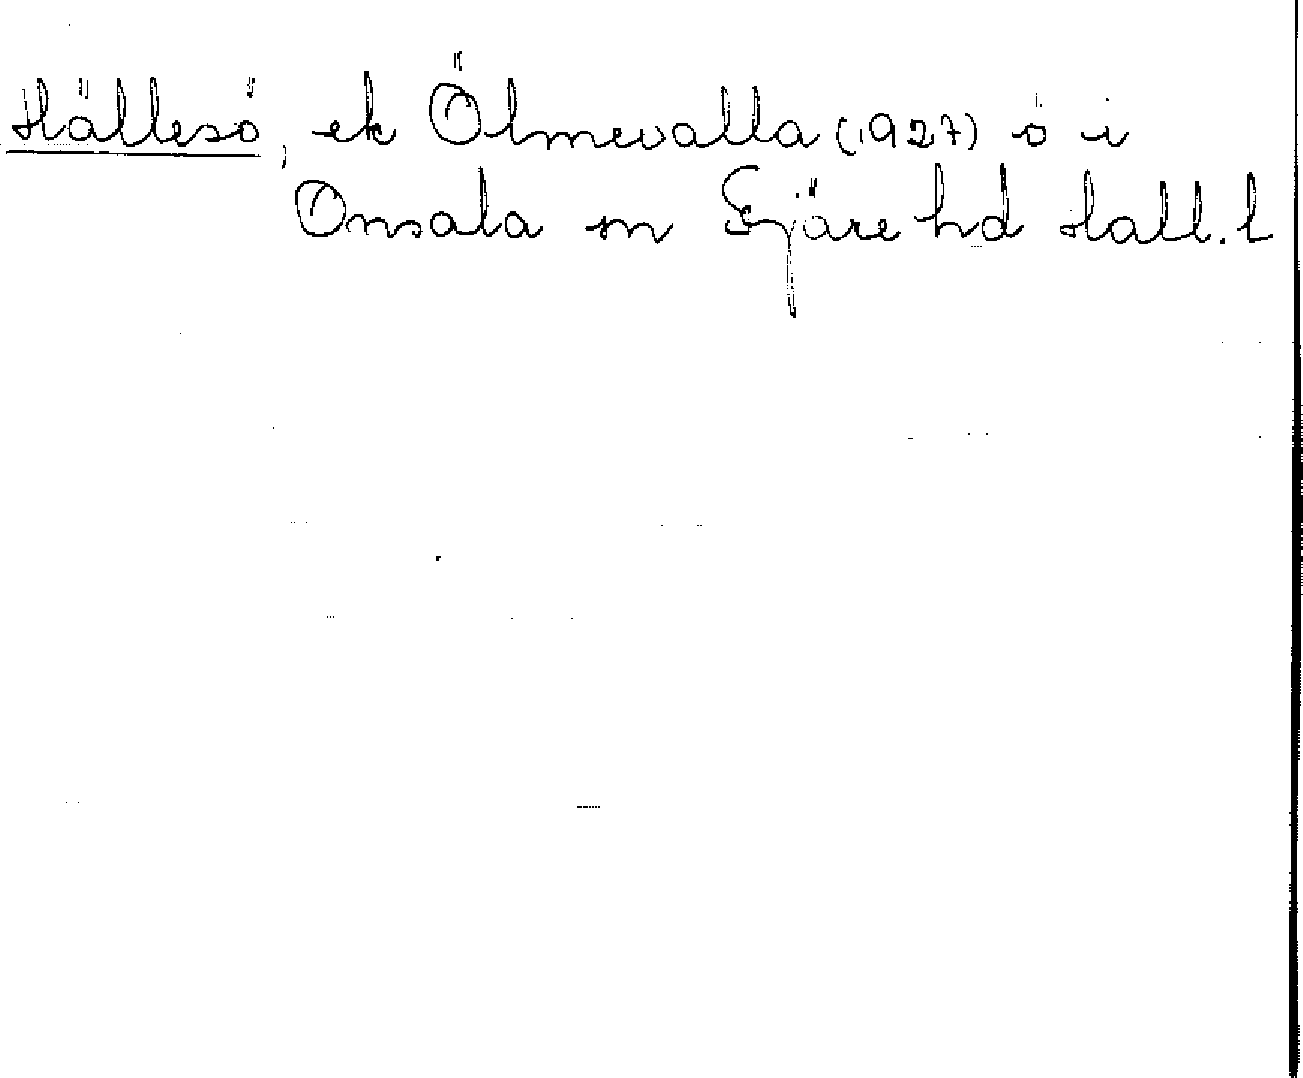 Hällesö, ek Ölmevalla (1927) ö i
Onsala sn Fjäre hd Hall. l